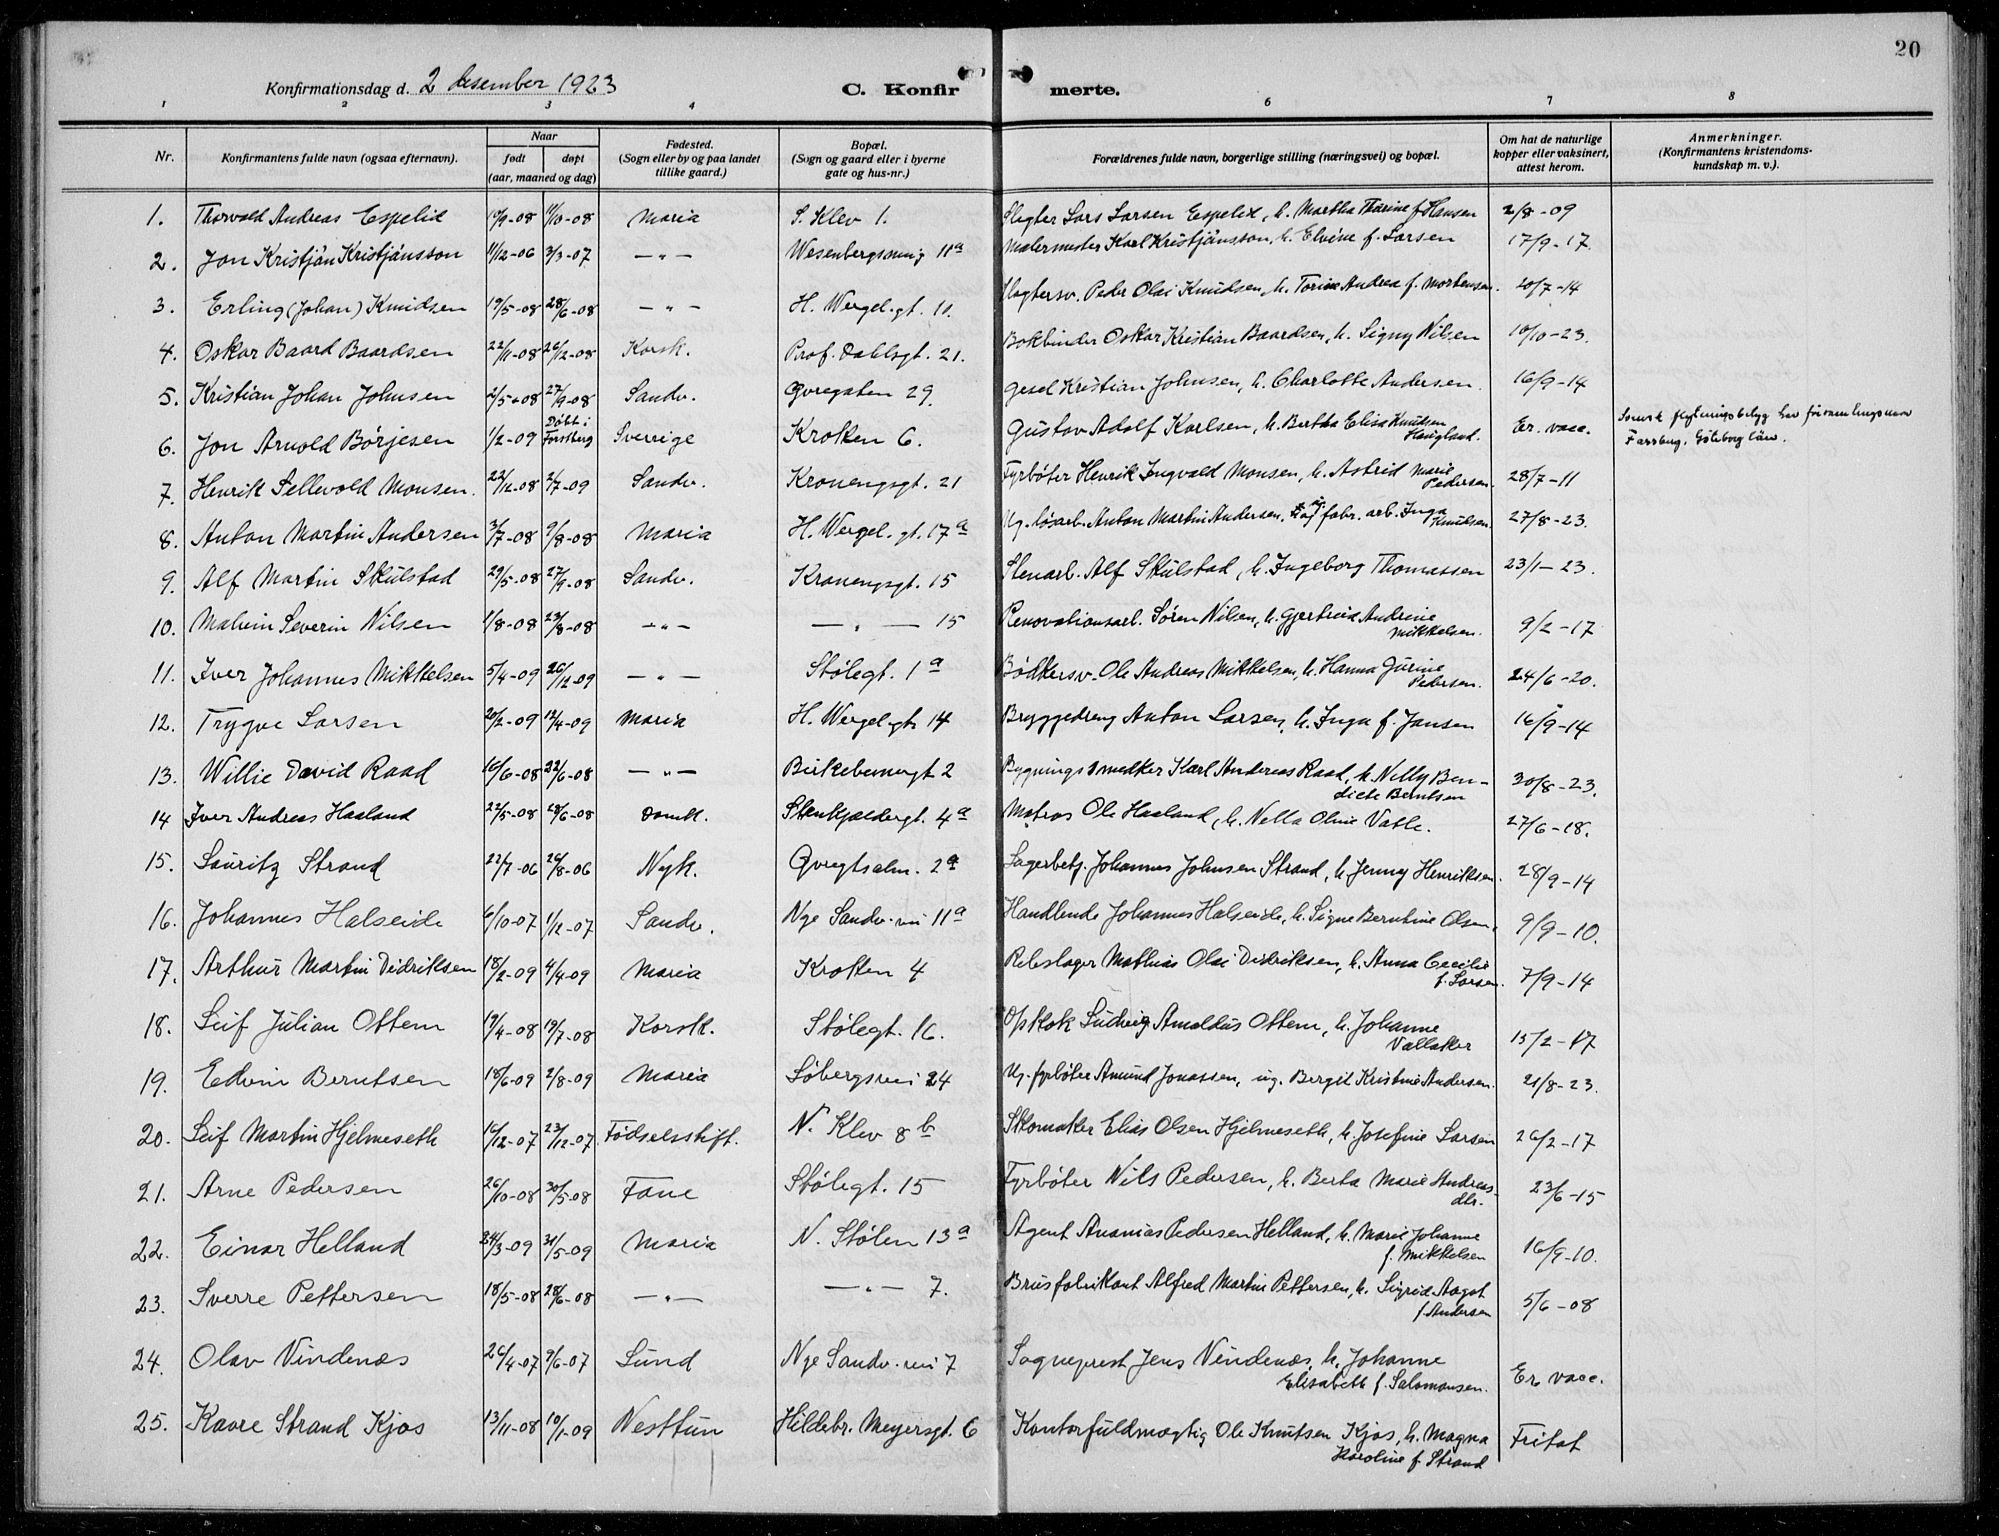 20
Konfirmationsdag d. 2 desember 1923
C. Konfirmerte.
1 2 3 4 6 7 8
Nr.
Konfirmantens fulde navn (ogsaa efternavn).
Naar
født døpt
(aar, maaned og dag)
Fødested.
(Sogn eller by og paa landet
tillike gaard.)
Bopæl.
(Sogn og gaard eller i byerne
gate og hus-nr.)
Forældrenes fulde navn, borgerlige stilling (næringsvei) og bopæl.
Om hat de naturlige
kopper eller vaksinert,
attest herom.
Anmerkninger.
(Konfirmantens kristendoms-
kundskap m. v.)
1. Thorvald Andreas Espelid 10/9-08 11/10-08 Maria S. Klev 1. Slagter Lars Larsen Espelid, h. Martha Thorine f. Hansen 2/8-09
2. Jon Kristján Kristjánsson 11/12-06 3/3-07 —„— Wesenbergsmug 11a Malermester Karl Kristjánsson, h. Elvine f. Larsen 17/9-17.
3. Erling (Johan) Knudsen 19/5-08 28/6-08 —„— H. Wergel. gt. 11. Slagtersv. Peder Olai Knudsen, h. Torine Andrea f. Mortensen. 20/7-14
4. Oskar Baard Baardsen 22/11-08 26/12-08 Korsk. Prof. Dahlsgt. 21. Bokbinder Oskar Kristian Baardsen, h. Signy Nilsen 10/10-23.
5. Kristian Johan Johnsen 2/5-08 27/9-08 Sandv. Øvregaten 29. Gesel Kristian Johnsen, h. Charlotte Andersen. 16/9-14
6. Jon Arnold Börjesen 1/2-09 Döbt i Forsberg Sverrige Kroken 6. Gustav Adolf Karlsen, h. Bertha Elisa Knutsen Haugland. Er. vacc. Svensk flytningsbetyg
Göteborg län.
7. Henrik Sellevold Monsen. 22/12-08 2/7-09 Sandv. Kronengsgt. 21 Fyrbøter Henrik Ingvald Monsen, h. Astrid Marie Pedersen. 28/7-11
8. Anton Martin Andersen 3/7-08 9/8-08 Maria H. Wergel. gt. 17a Ug. løsarb. Anton Martin Andersen, og fabr. arb. Inga Knudsen. 27/8-23.
9. Alf Martin Skulstad 29/5-08 27/9-08 Sandv. Kronengsgt. 15 Stenarb. Alf Skulstad, h. Ingeborg Thomassen 23/1-23.
10. Malvin Severin Nilsen 1/8-08 23/8-08 —„— —„— 15 Renovationsarb. Søren Nilsen, h. Gjertrud Andrine Mikkelsen. 9/2-17
11. Iver Johannes Mikkelsen 5/4-09 26/12-09 —„— Stølegt. 1a Bødkersv. Ole Andreas Mikkelsen, h. Hanna Gurine Pedersen. 24/6-20.
12. Trygve Larsen 20/2-09 12/4-09 Maria H. Wergel. gt. 14 Bryggedreng Anton Larsen, h. Inga f. Jansen 16/9-14
13. Willie David Raad 16/6-08 22/6-08 —„— Birkebeinergt 2 Bygningssnedker Karl Andreas Raad, h. Nelly Ben-
dicte Berntsen 30/8-23.
14 Iver Andreas Haaland 22/5-08 28/6-08 Domk. Stenkjældergt. 4a Matros Ole Haaland, h. Nella Oline Vatle. 27/6-18.
15. Lauritz Strand 22/7-06 26/8-06 Nyk. Øvregtsalm. 2a Lagerbetj. Johannes Johnsen Strand, h. Jenny Henriksen. 28/9-14
16. Johannes Halseide 6/10-07 1/12-07 Sandv. Nye Sandv. vei 11a Handlende Johannes Halseide, h. Signe Berntine Olsen. 9/9-10.
17. Arthur Martin Didriksen 18/2-09 4/4-09 Maria Kroken 4 Rebslager Mathias Olai Didriksen, h. Anna Cecilie f. Larsen. 7/9-14
18. Leif Julian Ottem 19/4-08 19/7-08 Korsk. Stølegt. 16. Opskok Ludvig Arnoldus Ottem, h. Johanne Vallaker 15/2-17
19. Edvin Berntsen 18/6-09 2/8-09 Maria Søbergsvei 24 Ug. fyrbøter Amund Jonassen, ug. Bergit Kristine Andersen. 21/8-23.
20. Leif Martin Hjelmeseth 16/12-07 23/12-07 Fødselsstift. N. Klev 8b Skomaker Elias Olsen Hjelmeseth, h. Josefine Larsen 26/2-17
21. Arne Pedersen 26/10-08 30/5-08 Fane Stølegt. 15 Fyrbøter Nils Pedersen, h. Berta Marie Andreas-
dtr. 23/6-15
22. Einar Helland 24/3-09 31/5-09 Maria N. Stølen 13a Agent Ananias Pedersen Helland, h. Marie Johanne f. Mikkelsen 16/9-10.
23. Sverre Pettersen 18/5-08 28/6-08 —„— —„— 7. Brusfabrikant Alfred Martin Pettersen, h. Sigrid Aagot f. Andersen 5/6-08
24. Olav Vindenæs 26/4-07 9/6-07 Lund Nye Sandv. vei 7 Sogneprest Jens Vindenæs, h. Johanne Elisabeth f. Salomonsen. Er vacc.
25. Kaare Strand Kjos 13/11-08 10/1-09 Nesttun Hildebr. Meyersgt. 6 Kontorfuldmægtig Ole Knutsen Kjos, h. Magna Karoline f. Strand Fritat